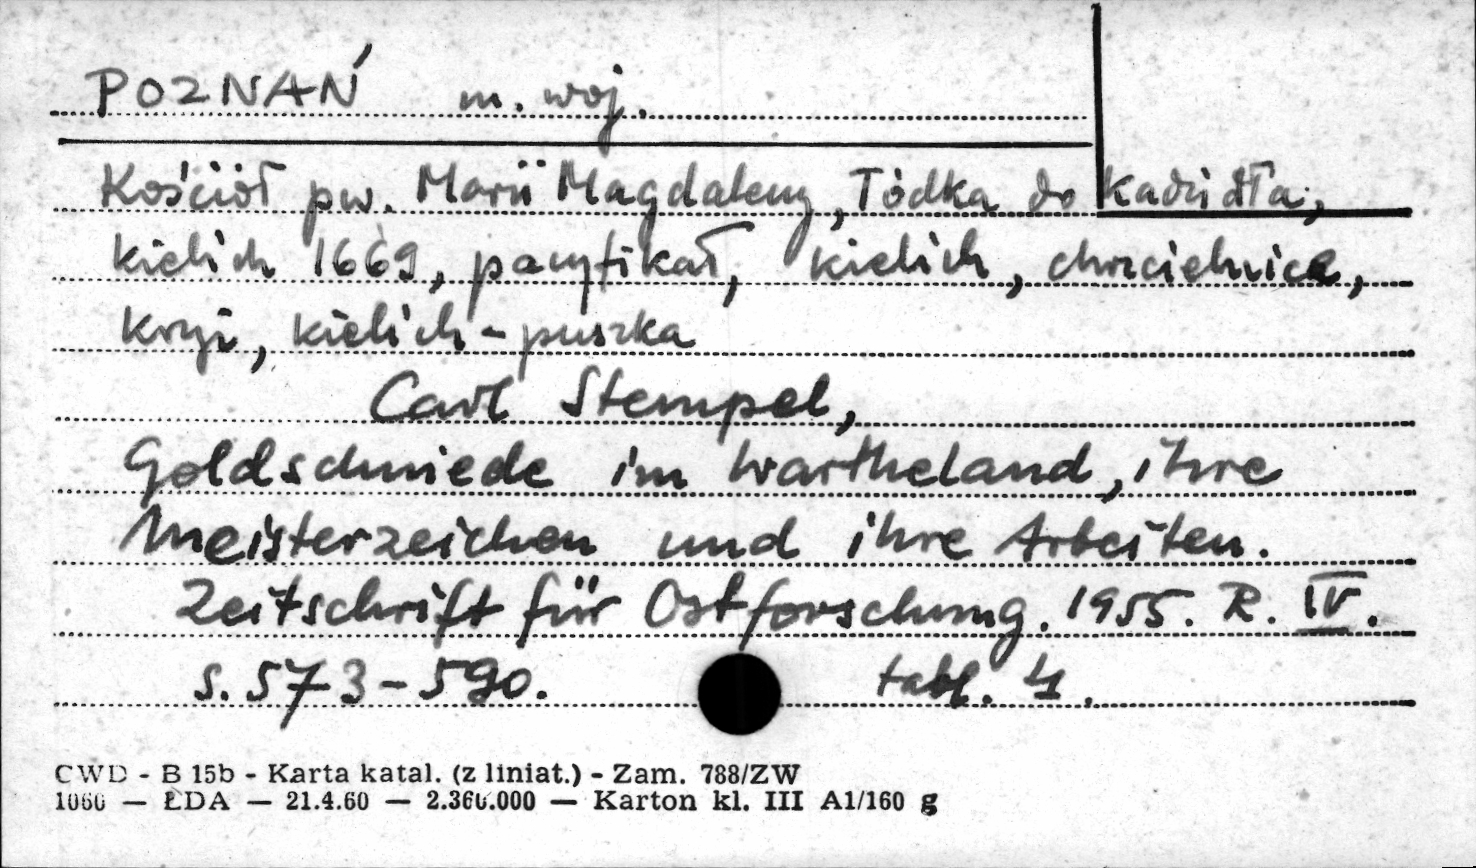 POZNAŃ m. woj.
Kościół pw. Marii Magdaleny, łódka do kadzidła,
kielich 1669, pacyfikał, kielich, chrzcielnica,
krzyż, kielich-puszka
Carl Stempel,
Goldschmiede im Wartheland, ihre
Meisterzeichen und ihre Arbeiten.
Zeitschrift für Ostforschung. 1955. R. IV.
s. 573-590. tabl. 4.
CWD - B 15b - Karta katal. (z liniat.) - Zam. 788/ZW
1060 — ŁDA — 21.4.60 — 2.360.000 — Karton kl. III A1/160 g